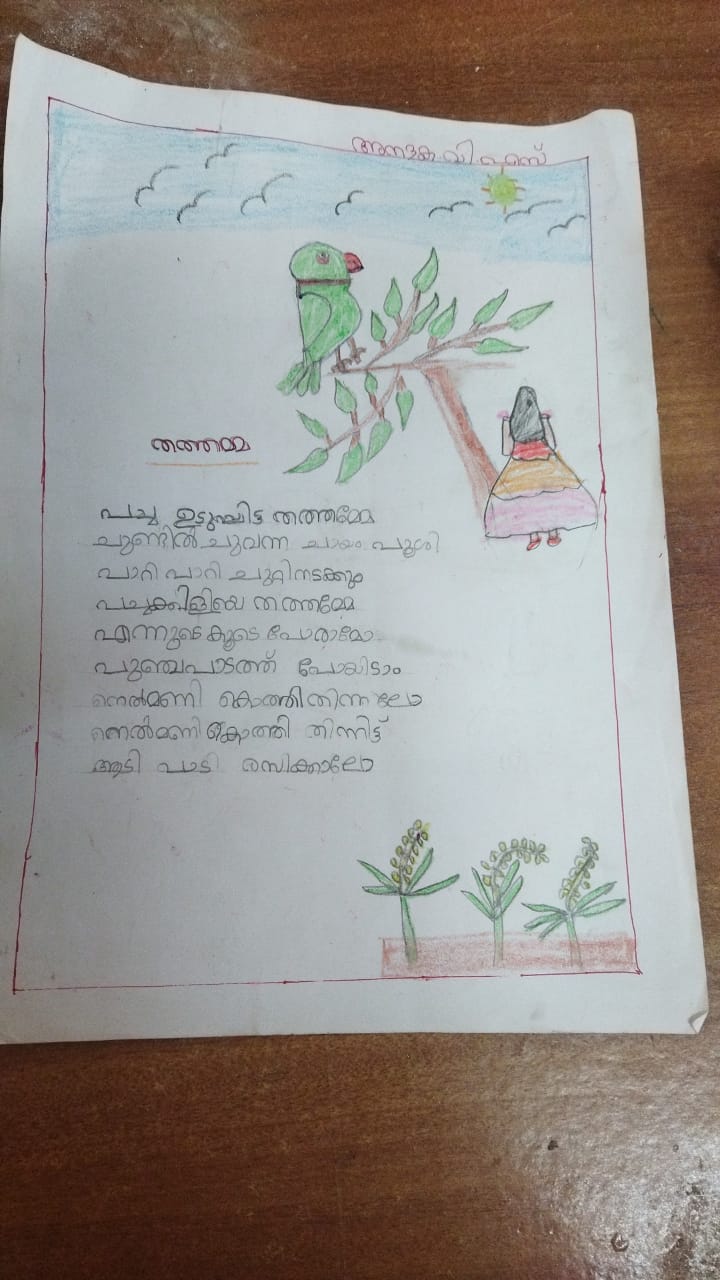 അനുക വി എസ്
തത്തമ്മ
പച്ച ഉടുപ്പിട്ട തത്തമ്മേ
ചുണ്ടിൽ ചുവന്ന ചായം പൂശി
പാറി പാറി ചുറ്റിനടക്കും
പച്ചക്കിളിയേ തത്തമ്മേ
എന്നുടെ കൂടെ പോരാമോ
പുഞ്ചപാടത്ത് പോയിടാം
നെൽമണി കൊത്തി തിന്നാലോ
നെൽമണി കൊത്തി തിന്നിട്ട്
ആടി പാടി രസിക്കാലോ